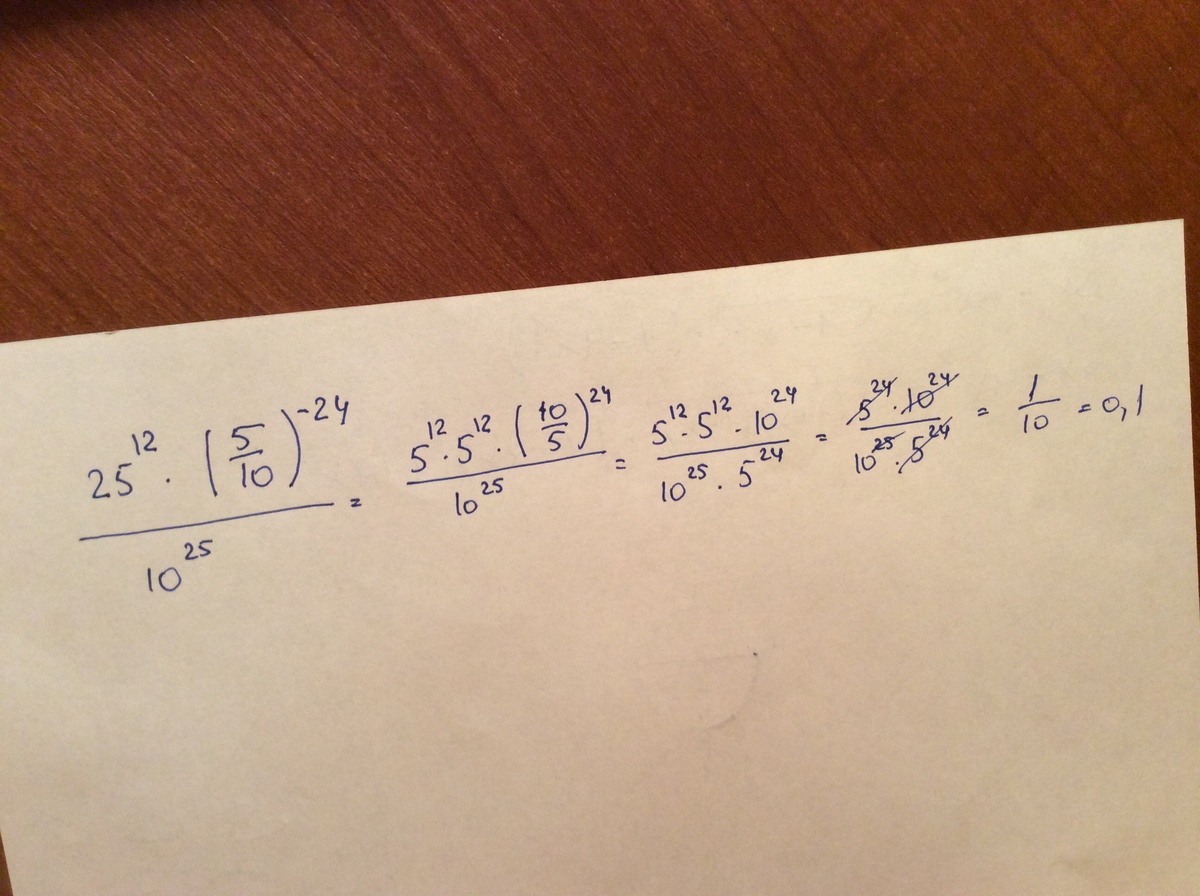 25^12 · (5/10)^-24 / 10^25 = 5^12 · 5^12 · (10/5)^24 / 10^25 = 5^12 · 5^12 · 10^24 / 10^25 · 5^24 = 5^24 · 10^24 / 10^25 · 5^24 = 1/10 = 0,1